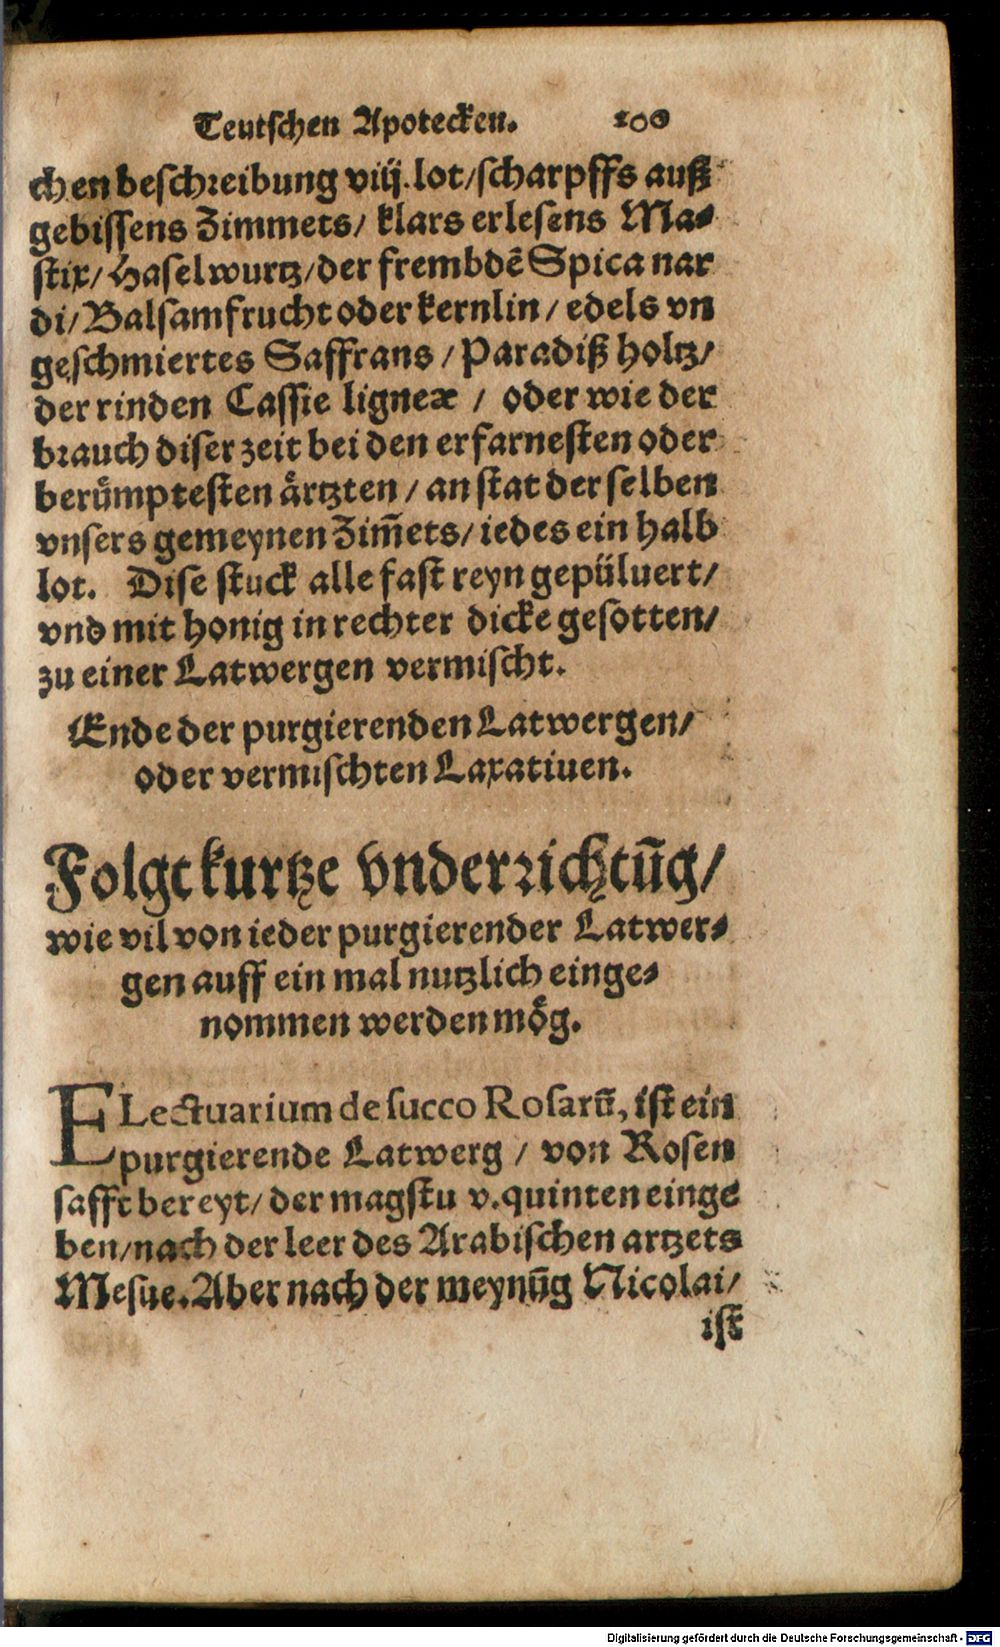 Teutschen Apotecken. 100
chen beschreibung viij. lot/scharpffs auß
gebissens Zimmets/ klars erlesens Ma⸗
stix/ Haselwurtz/der frembdẽ Spica nar
di/ Balsamfrucht oder kernlin/ edels vn
geschmiertes Saffrans/ Paradiß holtz/
der rinden Cassie ligneæ/ oder wie der
brauch diser zeit bei den erfarnesten oder
berümptesten ärtzten/ an stat der selben
vnsers gemeynen Zim̃ets/ iedes ein halb
lot. Dise stuck alle fast reyn gepülvert/
vnd mit honig in rechter dicke gesotten/
zu einer Latwergen vermischt.
Ende der purgierenden Latwergen/
oder vermischten Laxatiuen.
Folgt kurtze vnderrichtũg/
wie vil von ieder purgierender Latwer⸗
gen auff ein mal nutzlich einge⸗
nommen werden mög.
ELectuarium de succo Rosarũ, ist ein
purgierende Latwerg/ von Rosen
safft bereyt/ der magstu v. quinten einge
ben/nach der leer des Arabischen artzets
Mesue. Aber nach der meynũg Nicolai/
ist
Digitalisierung gefördert durch die Deutsche Forschungsgemeinschaft - DFG